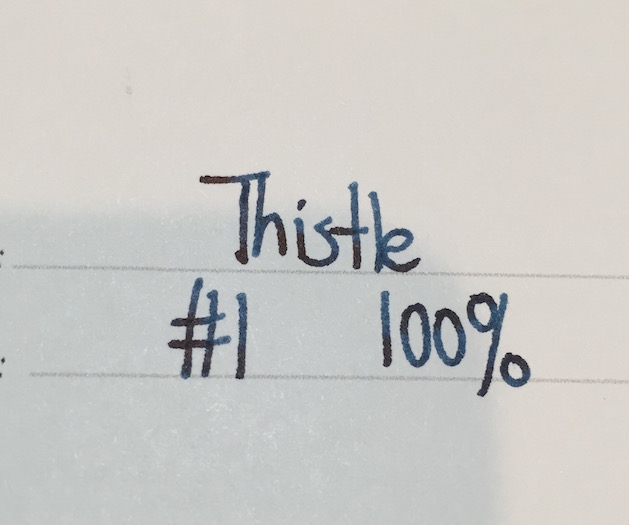 Thistle
#1 100%